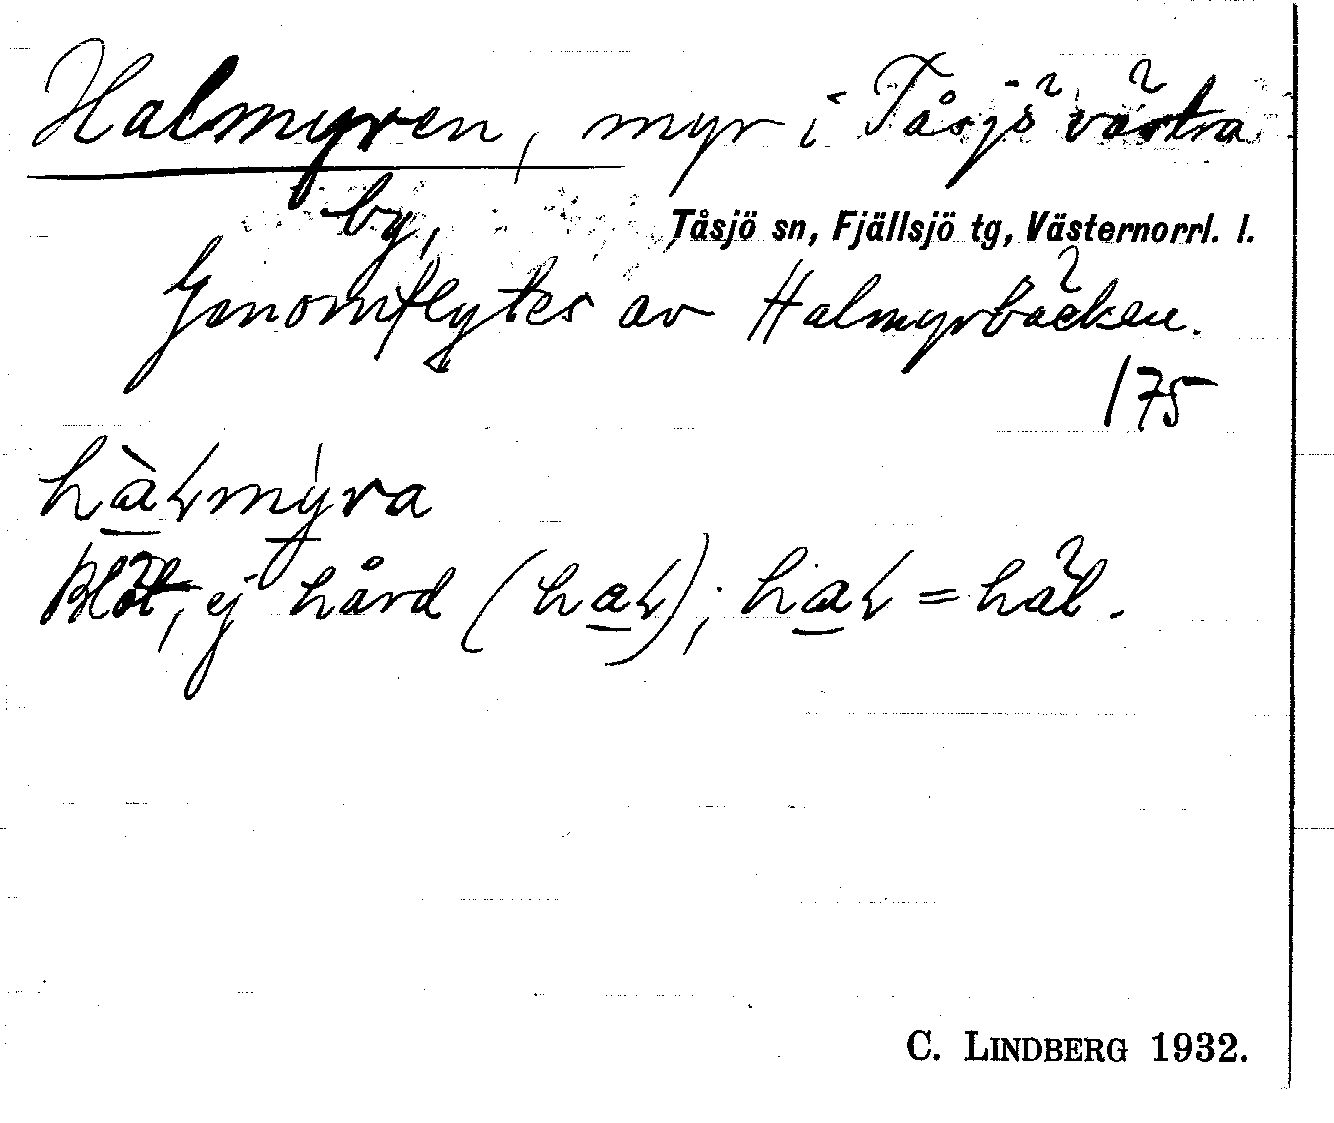 Halmyren, myr i Tåsjö västra
by,
Tåsjö sn, Fjällsjö tg, Västernorrl. l.
Genomflytes av Halmyrbäcken.
175
hàɽmýra
Blöt, ej hård (haɽ); haɽ = häl.
C. LINDBERG 1932.